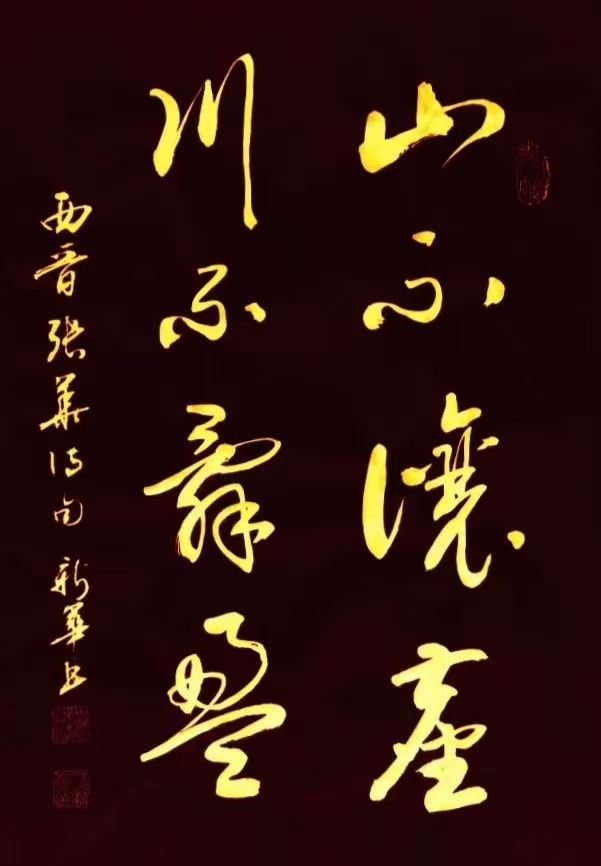 山不讓塵
川不辭盈
西晋張華诗句 新華书